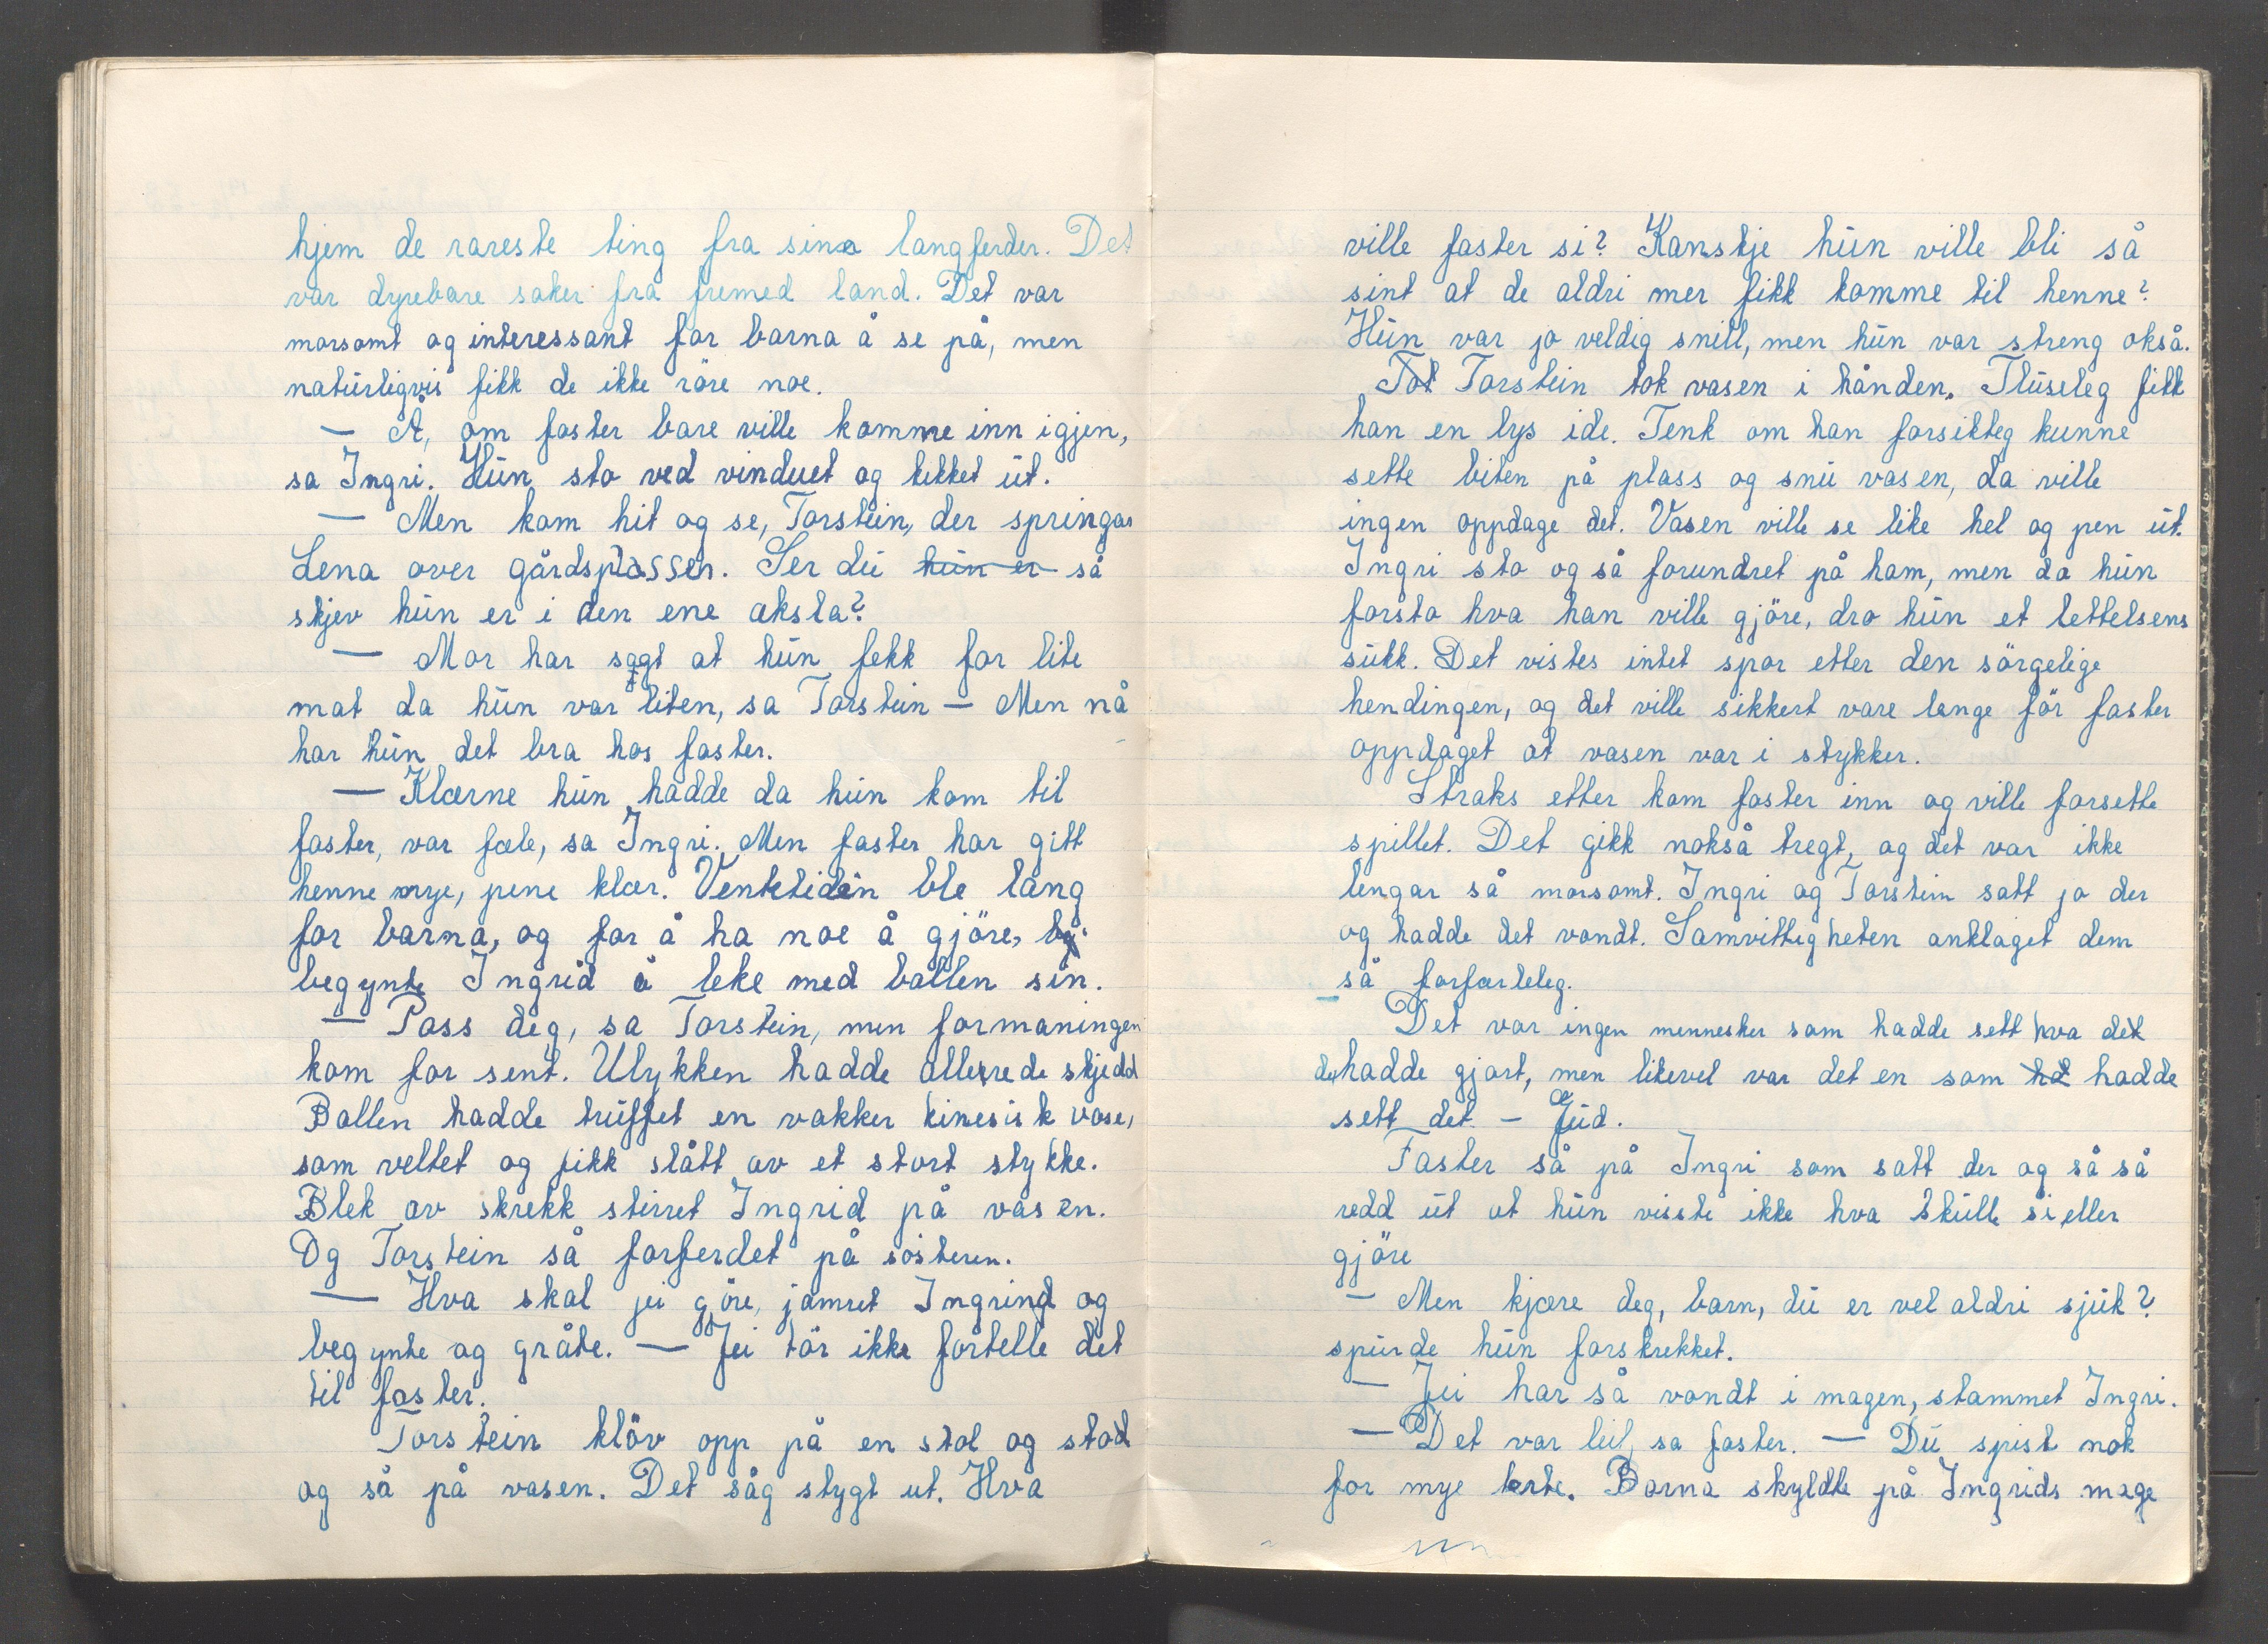 hjem de rareste ting fra sina langferder. Det
var dyrebare saker fra fremed land. Det var
morsomt og interessant for barna å se på, men
natúrligvis fikk de ikke röre noe.
— Å, om faster bare ville komme inn igjen,
sa Ingri. Hún sto ved vinduet og kikket út.
— Men kom hit og se, Torstein, der springar
Lena over gårdsplassen. Ser dú hún er så
skjev hún er i den ene aksla?
— Mor har sagt at hún fekk for lite
mat da hún var liten, sa Torstein — Men nå
har hún det bra hos faster.
— Klærne hún hadde da hún kom til
faster, var fæle, sa Ingri. Men faster har gitt
henne mye, pene klær. Ventetiden ble lang
for barna, og for å ha noe å gjöre, by
begynte Ingrid å leke med ballen sin.
— Pass deg, sa Torstein, men formaningen
kom for sent. Ulykken hadde allerede skjedd
Ballen hadde trúffet en vakker kinesisk vase,
som veltet og fikk slått av et stort stykke.
Blek av skrekk stirret Ingrid på vasen.
Og Torstein så forferdet på sösteren.
— Hva skal jei göre, jamret Ingrind og
begynte og gråte. — Jei tör ikke fortelle det
til faster.
Torstein klöv opp på en stol og stod
og så på vasen. Det såg stygt ut. Hva
ville faster si? Kanskje hún ville bli så
sint at de aldri mer fikk komme til henne?
Hún var jo veldig snill, men hún var streng også.
Tot Torstein tok vasen i hånden. Tlúseleg fikk
han en lys ide. Tenk om han forsikteg kunne
sette biten på plass og snú vasen, da ville
ingen oppdage det. Vasen ville se like hel og pen út.
Ingri sto og så forundret på ham, men da hún
forsto hva han ville gjöre, dro hún et lettelsens
súkk. Det vistes intet spor etter den sörgelige
hendingen, og det ville sikkert vare lenge för faster
oppdaget at vasen var i stykker.
Straks etter kom faster inn og ville forsette
spillet. Det gikk nokså tregt, og det var ikke
lengar så morsomt. Ingri og Torstein satt jo der
og hadde det vondt. Samvittigheten anklaget dem
så forfærleleg.
Det var ingen mennesker som hadde sett hva det
de hadde gjort, men likevel var det en som hd hadde
sett det. – Gúd.
Faster så på Ingri som satt der og så så
redd út at hún visste ikke hva skúlle si, eller
gjöre
– Men kjære deg, barn, dú er vel aldri sjúk?
spúrde hún forskrekket.
– Jei har så vondt i magen, stammet Ingri.
— Det var leit, sa faster. — Dú spist nok
for mye terte. Barna skyldte på Ingrids mage